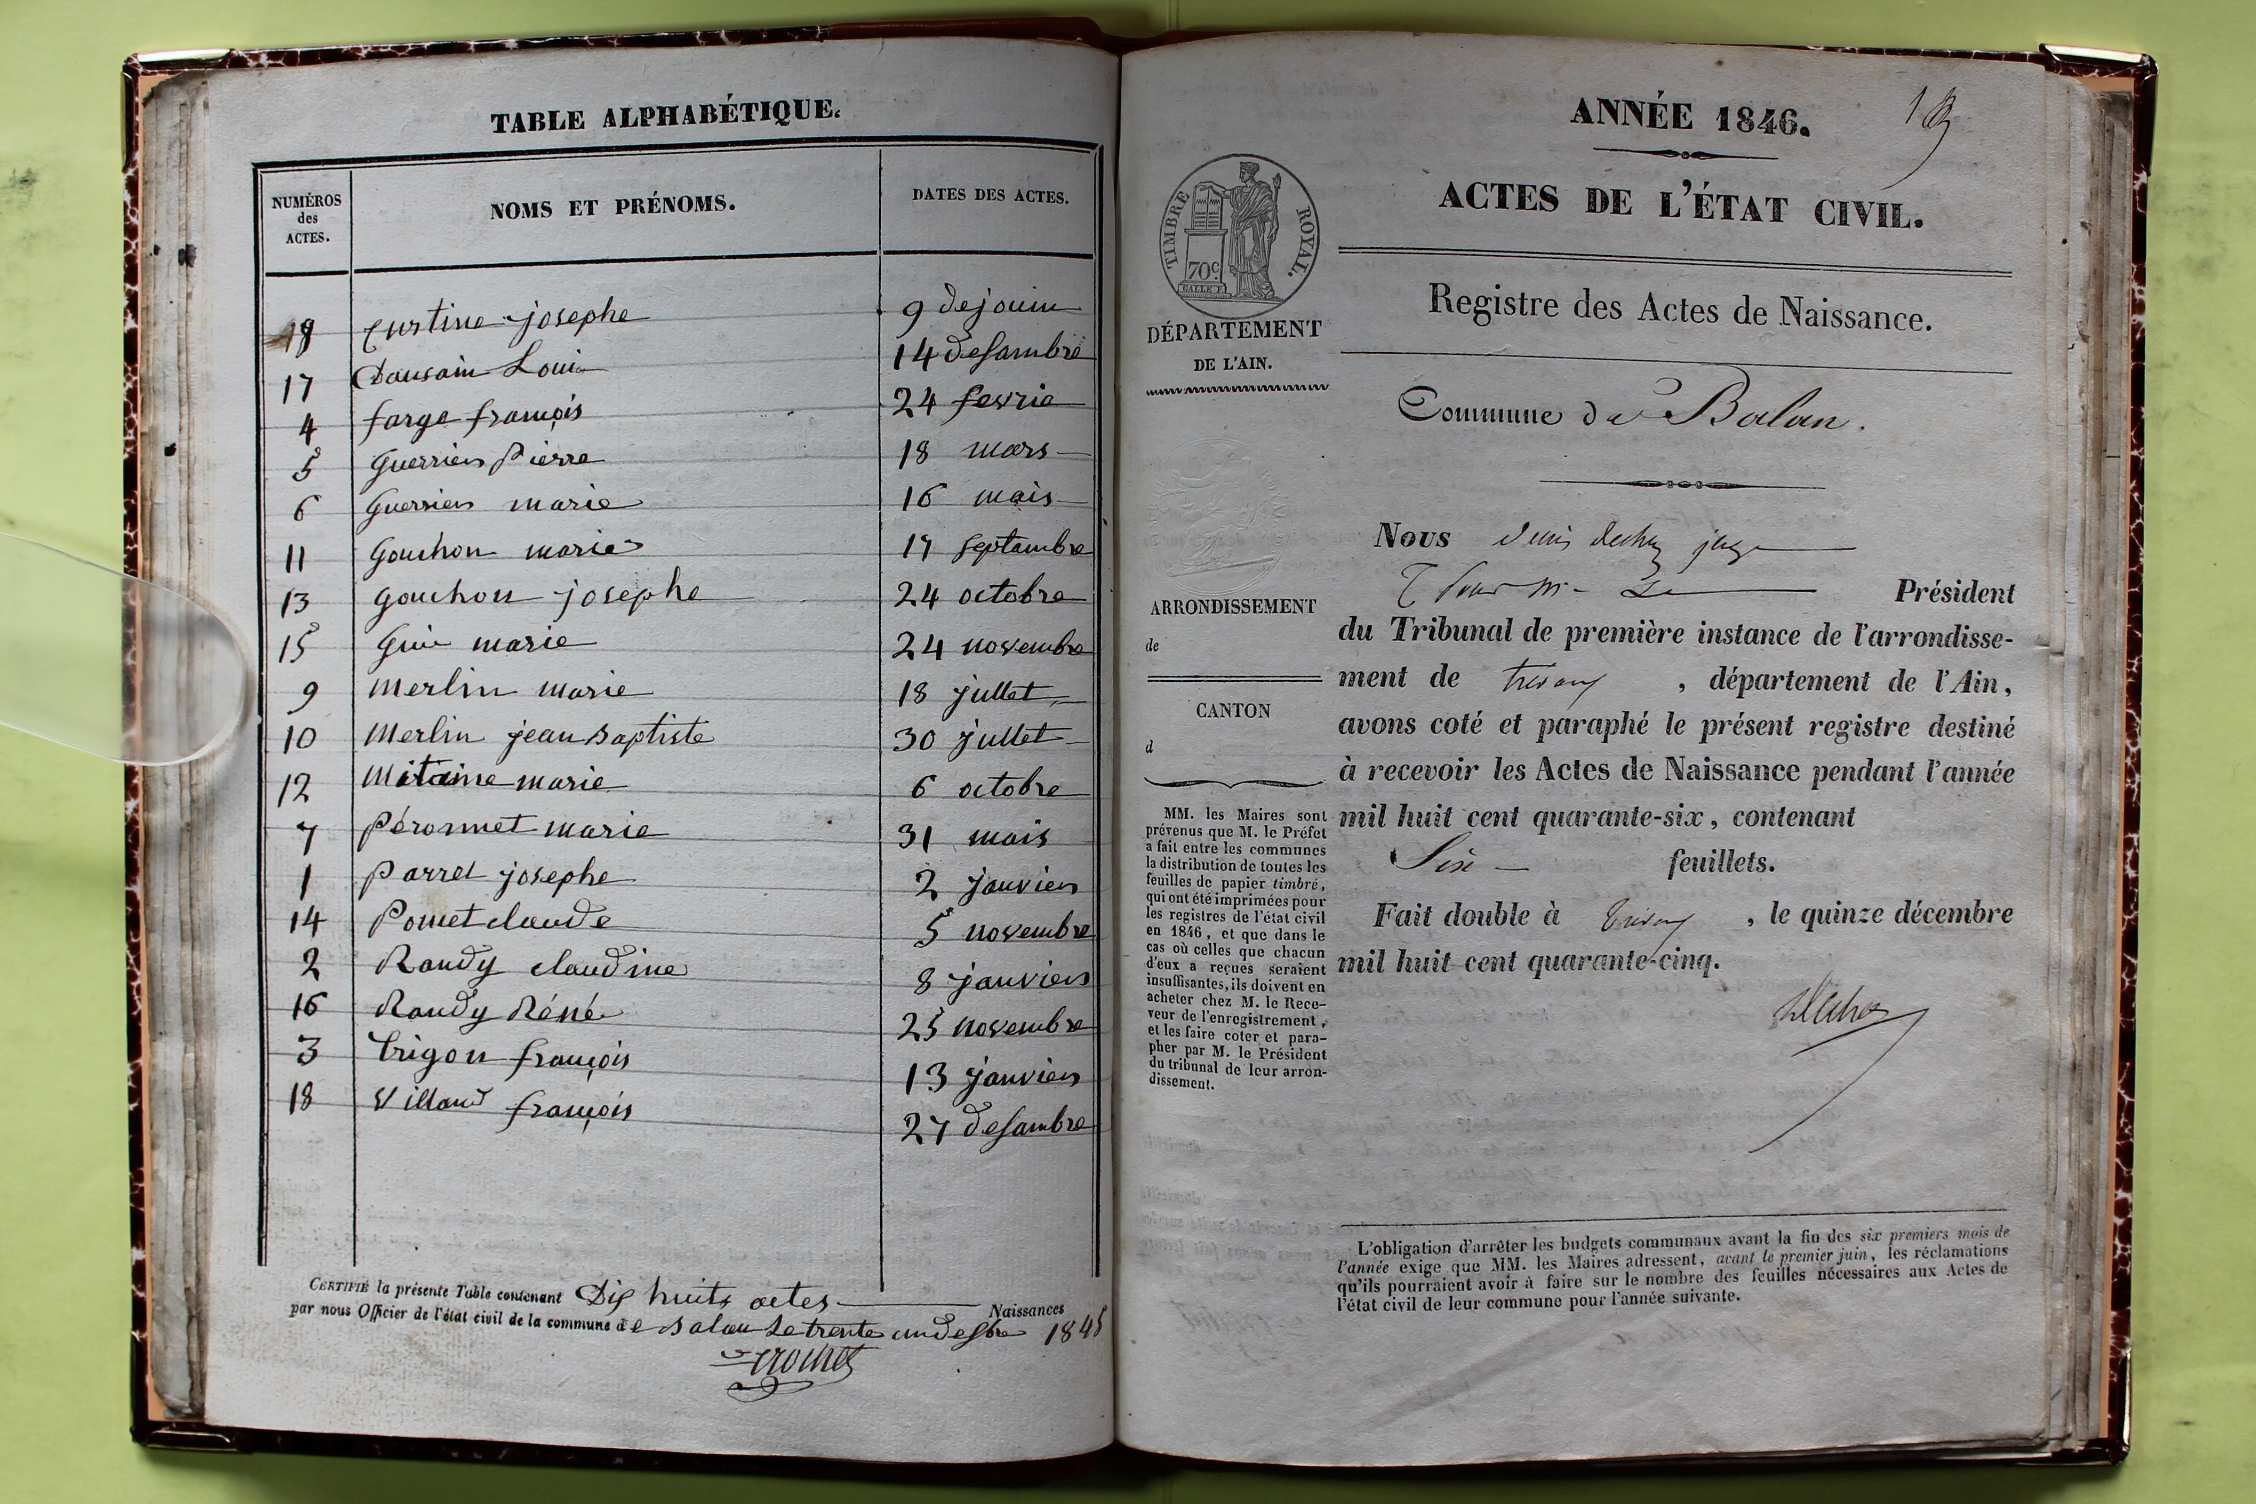 TABLE ALPHABÉTIQUE.
NUMÉROS des ACTES.
NOMS ET PRÉNOMS.
DATES DES ACTES.
18 Curtine josephe 9 de jouin
17 Dausain Loui 14 desambre
4 farge françois 24 fevrie
5 Guerrier Pierre 18 mars
6 Guerrier marie 16 mais
11 Gouchon marie 17 septambre
13 gouchon josephe 24 octobre
15 Guie marie 24 novembre
9 Merlin marie 18 jullet
10 Merlin jean Baptiste 30 jullet
12 Mitaine marie 6 octobre
7 Péronnet marie 31 mais
1 Parret josephe 2 janvier
14 Pomet claude 5 novembre
2 Randy claudine 8 janvier
16 Randy Réné 25 novembre
3 Trigon françois 13 janvier
18 Villand françois 27 desambre
CERTIFIÉ la présente Table contenant Dix huits actes Naissances
par nous Officier de l'état civil de la commune de Balan le trente un desbre 1845
Crochet
ANNÉE 1846.
ACTES DE L'ÉTAT CIVIL.
TIMBRE ROYAL.
70c
Registre des Actes de Naissance.
DÉPARTEMENT
DE L'AIN.
Commune de Balan.
Nous denis juge
Président
du Tribunal de première instance de l'arrondisse-
ment de trevoux, département de l'Ain,
avons coté et paraphé le présent registre destiné
à recevoir les Actes de Naissance pendant l'année
mil huit cent quarante-six, contenant
Six feuillets.
Fait double à trevoux, le quinze décembre
mil huit cent quarante-cinq.
ARRONDISSEMENT
de
CANTON
d
MM. les Maires sont
prévenus que M. le Préfet
a fait entre les communes
la distribution de toutes les
feuilles de papier timbré,
qui ont été imprimées pour
les registres de l'état civil
en 1846, et que dans le
cas où celles que chacun
d'eux a reçues seraient
insuffisantes, ils doivent en
acheter chez M. le Rece-
veur de l'enregistrement,
et les faire coter et para-
pher par M. le Président
du tribunal de leur arron-
dissement.
L'obligation d'arrêter les budgets communaux avant la fin des six premiers mois de
l'année exige que MM. les Maires adressent, avant le premier juin, les réclamations
qu'ils pourraient avoir à faire sur le nombre des feuilles nécessaires aux Actes de
l'état civil de leur commune pour l'année suivante.